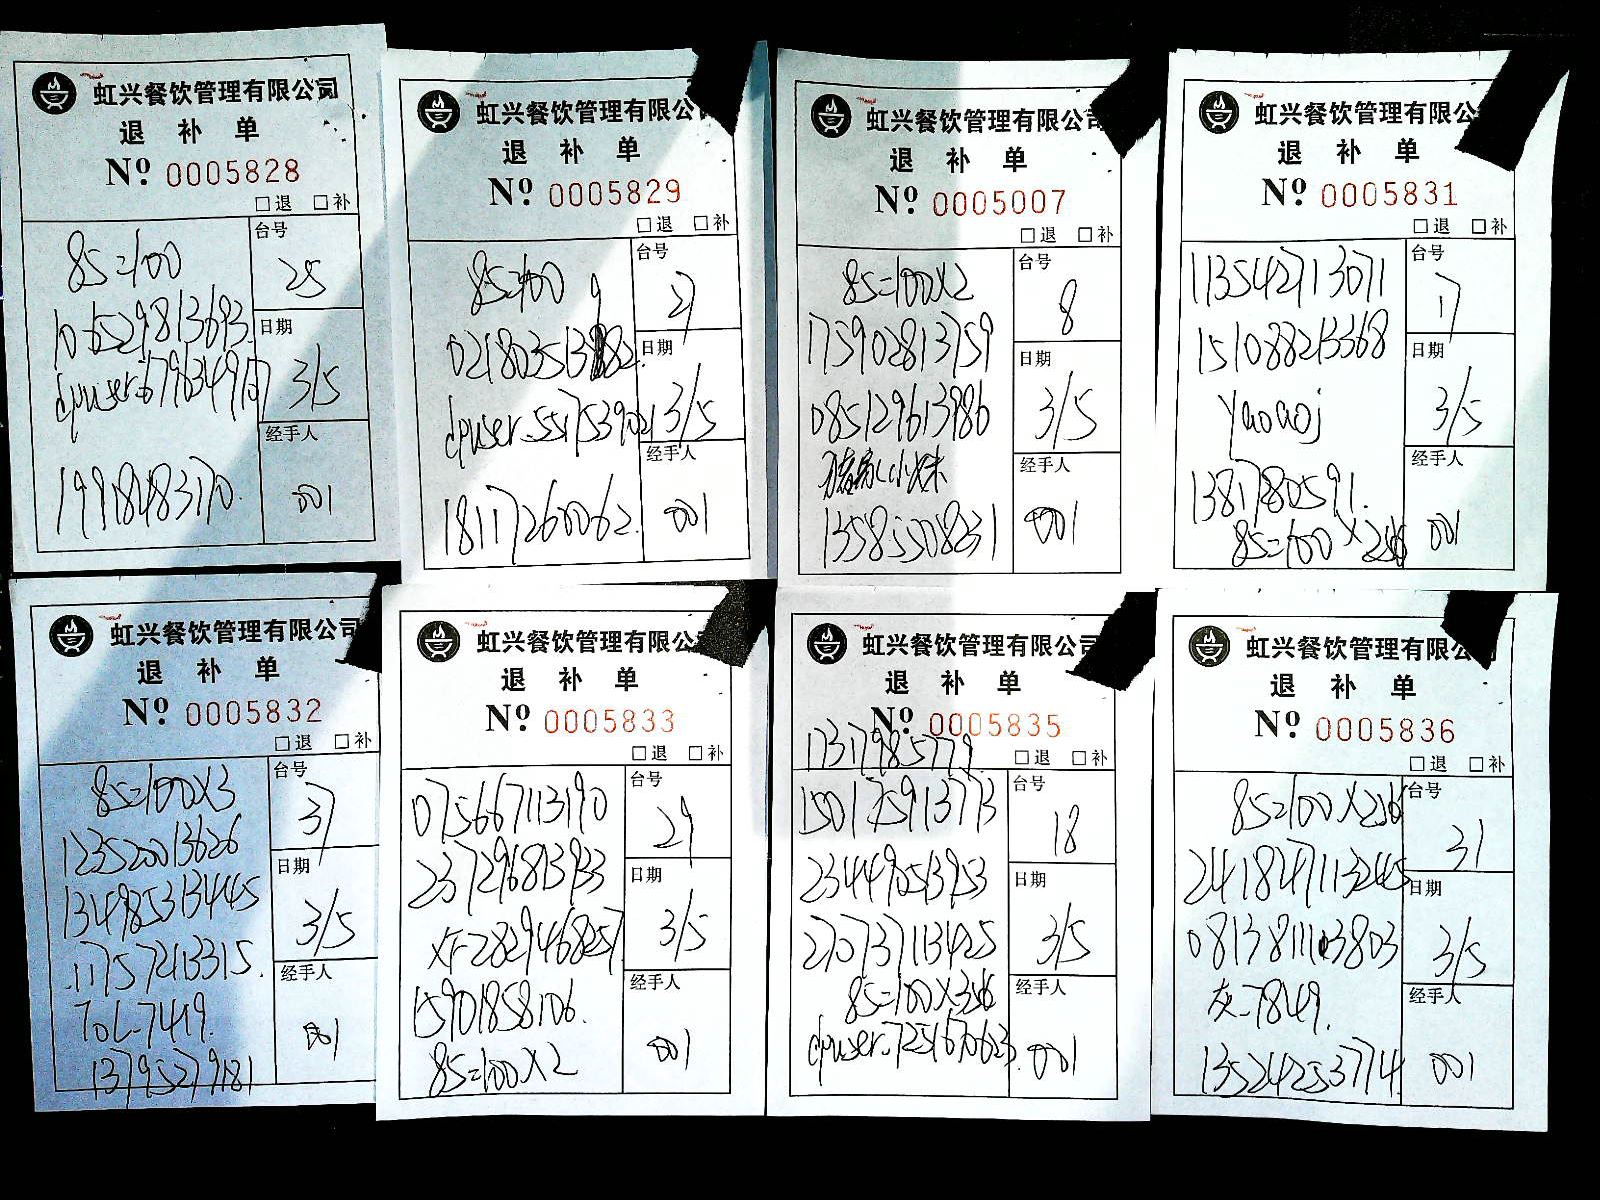 虹兴餐饮管理有限公司
退 补 单
Nº 0005828
□退 □补
85=100
台号
25
日期
3/5
经手人
19918483170.
001
虹兴餐饮管理有限公
退 补 单
Nº 0005829
□退 □补
85=100
台号
27
日期
dpuser-5517539021
3/5
经手人
18117260062.
001
虹兴餐饮管理有限公司
退 补 单
Nº 0005007
□退 □补
85=100X2
台号
8
175902813759
日期
085129613986
3/5
经手人
13585508231
001
虹兴餐饮管理有限公
退 补 单
Nº 0005831
□退 □补
113542713071
台号
17
151088213368
日期
yaoaoj
3/5
经手人
1381780591.
001
虹兴餐饮管理有限公司
退 补 单
Nº 0005832
□退 □补
85=100X3
台号
37
123520013626
日期
134985313445
3/5
11757213315.
经手人
ToL-7419.
13795279181
001
虹兴餐饮管理有限公
退 补 单
Nº 0005833
□退 □补
075667113190
台号
29
237296813933
日期
XF-2829468257
3/5
经手人
15901858106.
001
85=100X2
虹兴餐饮管理有限公司
退 补 单
Nº 0005835
13179985779
□退 □补
150175913773
台号
18
234449513953
日期
270737113425
3/5
经手人
dpuser-7251670623.
001
虹兴餐饮管理有限公司
退 补 单
Nº 0005836
□退 □补
台号
31
241847113245
日期
3/5
灰-7849.
经手人
13524253774
001